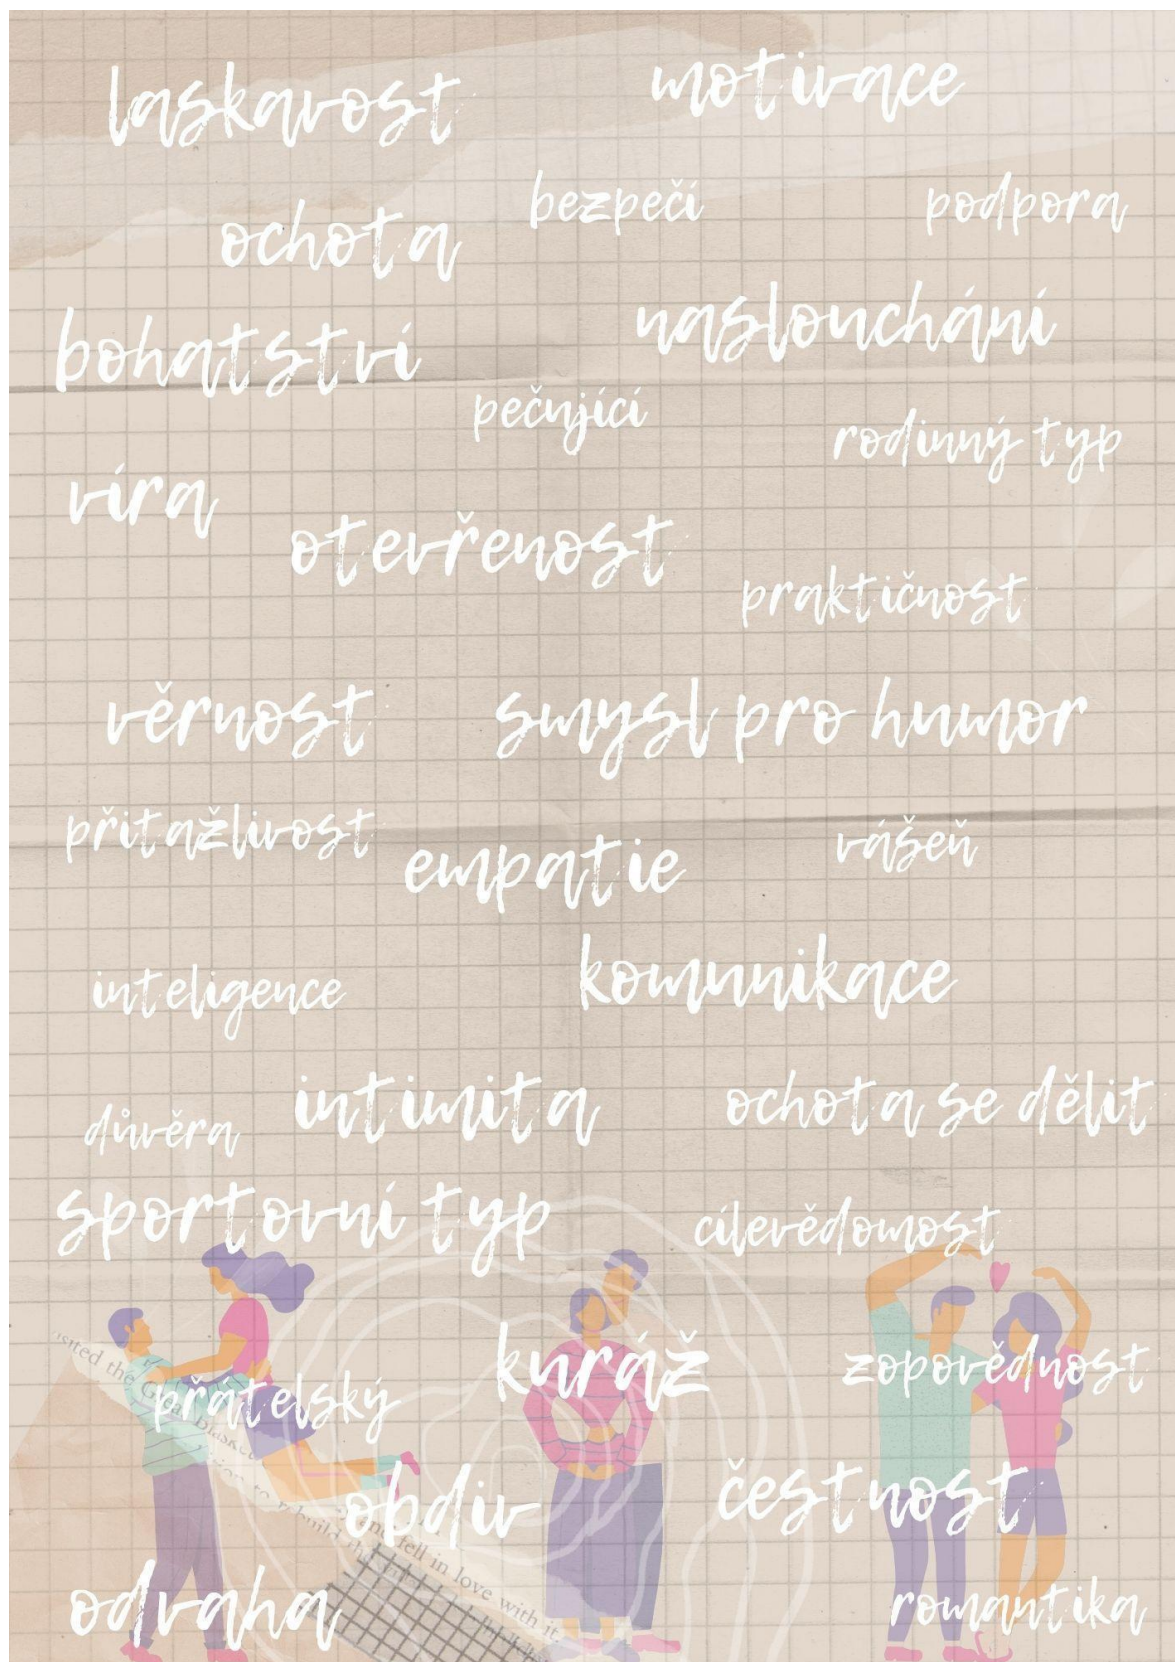 laskavost
motivace
bezpečí
podpora
ochota
naslouchání
bohatství
pečující
rodinný typ
víra
otevřenost
praktičnost
věrnost
smysl pro humor
přitažlivost
empatie
vášeň
inteligence
komunikace
intimita
ochota se dělit
důvěra
sportovní typ
cílevědomost
kuráž
zopovědnost
přátelský
obdiv
čestnost
odvaha
romantika
isited the G
fell in love with it.